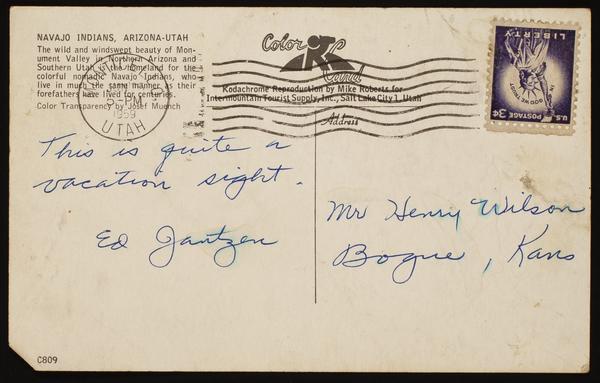 NAVAJO INDIANS, ARIZONA-UTAH
The wild and windswept beauty of Mon-
ument Valley in Northern Arizona and
Southern Utah is the homeland for the
colorful nomadic Navajo Indians, who
live in much the same manner as their
forefathers have lived for centuries.
Color Transparency by Josef Muench
PM
1959
UTAH
Color
Card
Kodachrome Reproduction by Mike Roberts for
Intermountain Tourist Supply, Inc., Salt Lake City 1, Utah
Address
LIBERTY
IN GOD WE TRUST
U.S. POSTAGE 3¢
This is quite a
vacation sight.
Ed Jantzen
Mr Henry Wilson
Bogue, Kans
C809